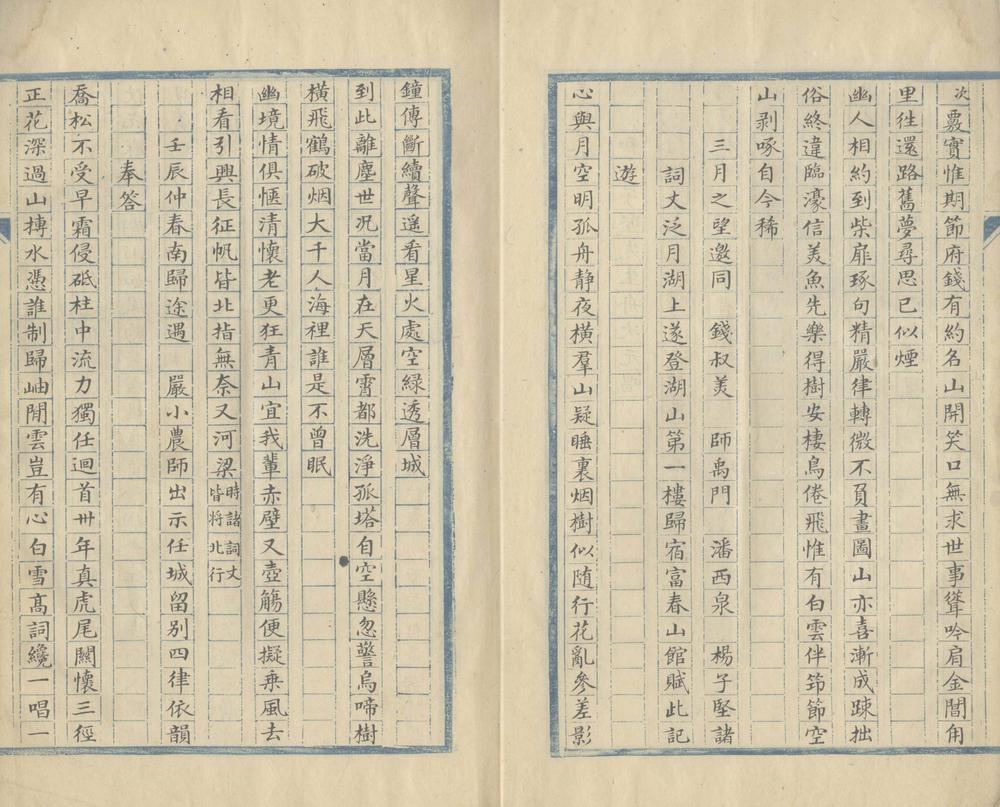 次覈實惟期節府錢有約名山開笑口無求世事聳吟肩金閶甪
里徃還路舊夢尋思已似煙
幽人相約到柴扉琢句精嚴律轉微不負畫圖山亦喜漸成踈拙
俗終違臨濠信美魚先樂得樹安棲鳥倦飛惟有白雲伴笻節空
山剥啄自今稀
三月之望邀同　錢叔美　師禹門　潘西泉　楊子堅諸
詞丈泛月湖上遂登湖山第一樓歸宿富春山館賦此記
遊
心與月空明孤舟静夜横羣山疑睡裏烟樹似随行花亂參差影
鐘傳斷續聲遥看星火處空緑透層城
到此離塵世況當月在天層霄都洗淨孤塔自空懸忽警烏啼樹
横飛鶴破烟大千人海裡誰是不曾眠
幽境情俱愜清懷老更狂青山宜我輩赤壁又壺觴便擬乘風去
相看引興長征帆皆北指無奈又河梁時諸詞丈皆將北行
壬辰仲春南歸途遇　嚴小農師出示任城留别四律依韻
奉答
喬松不受早霜侵砥柱中流力獨任迴首卅年真虎尾關懷三徑
正花深過山摶水憑誰制歸岫閒雲豈有心白雪髙詞纔一唱一